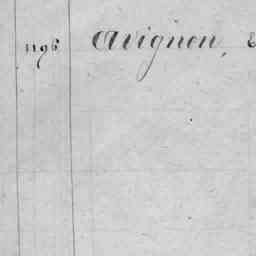 1196 Avignon,